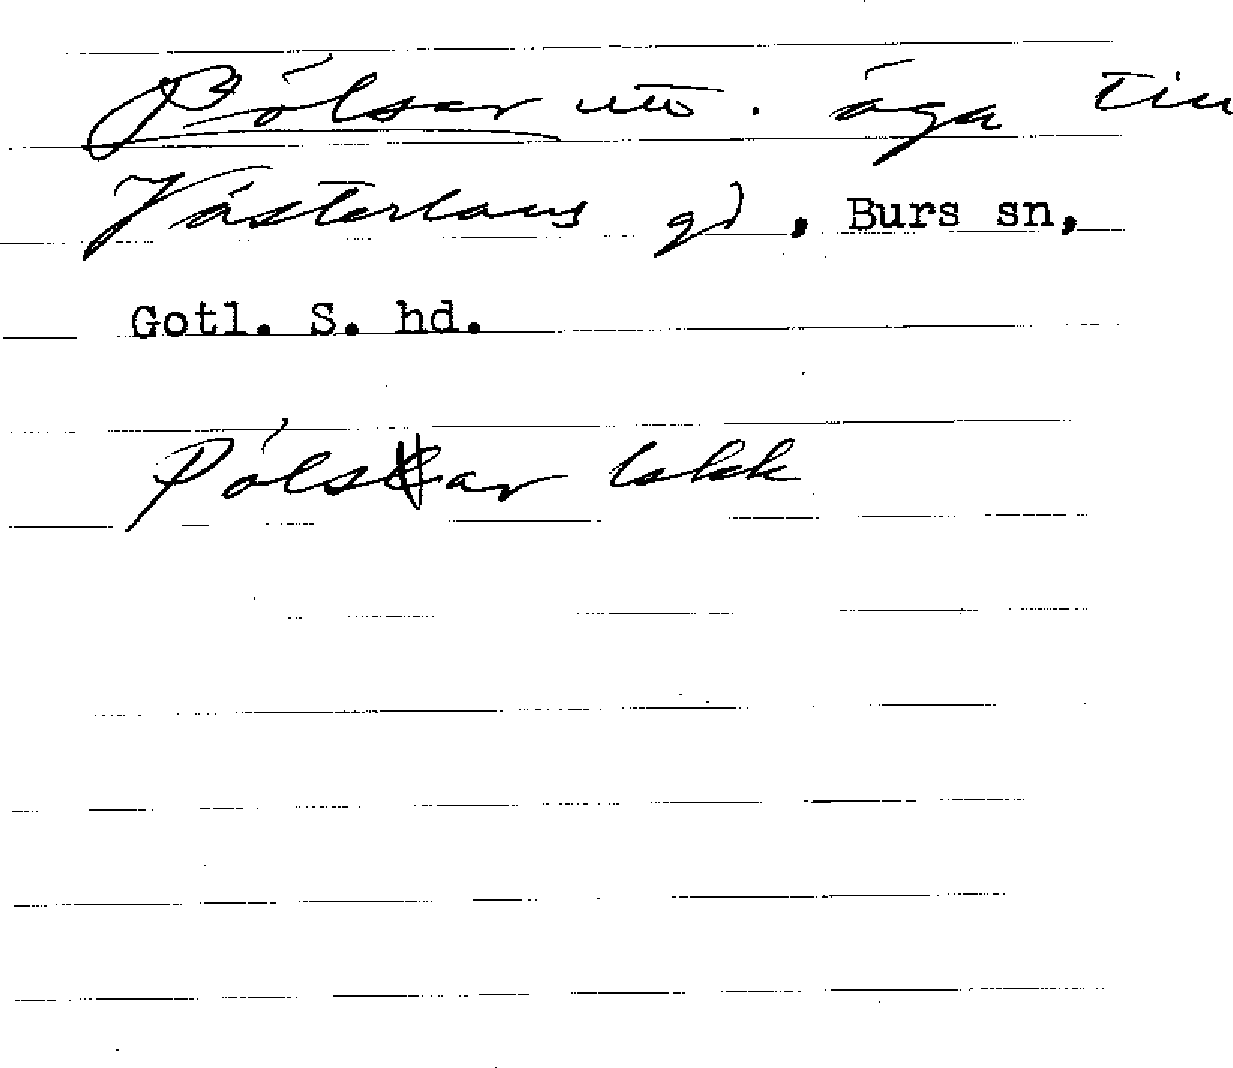 Pólsar utö. äga till
Västerlaus gd, Burs sn,
Gotl. S. hd.
Pólsar lakk